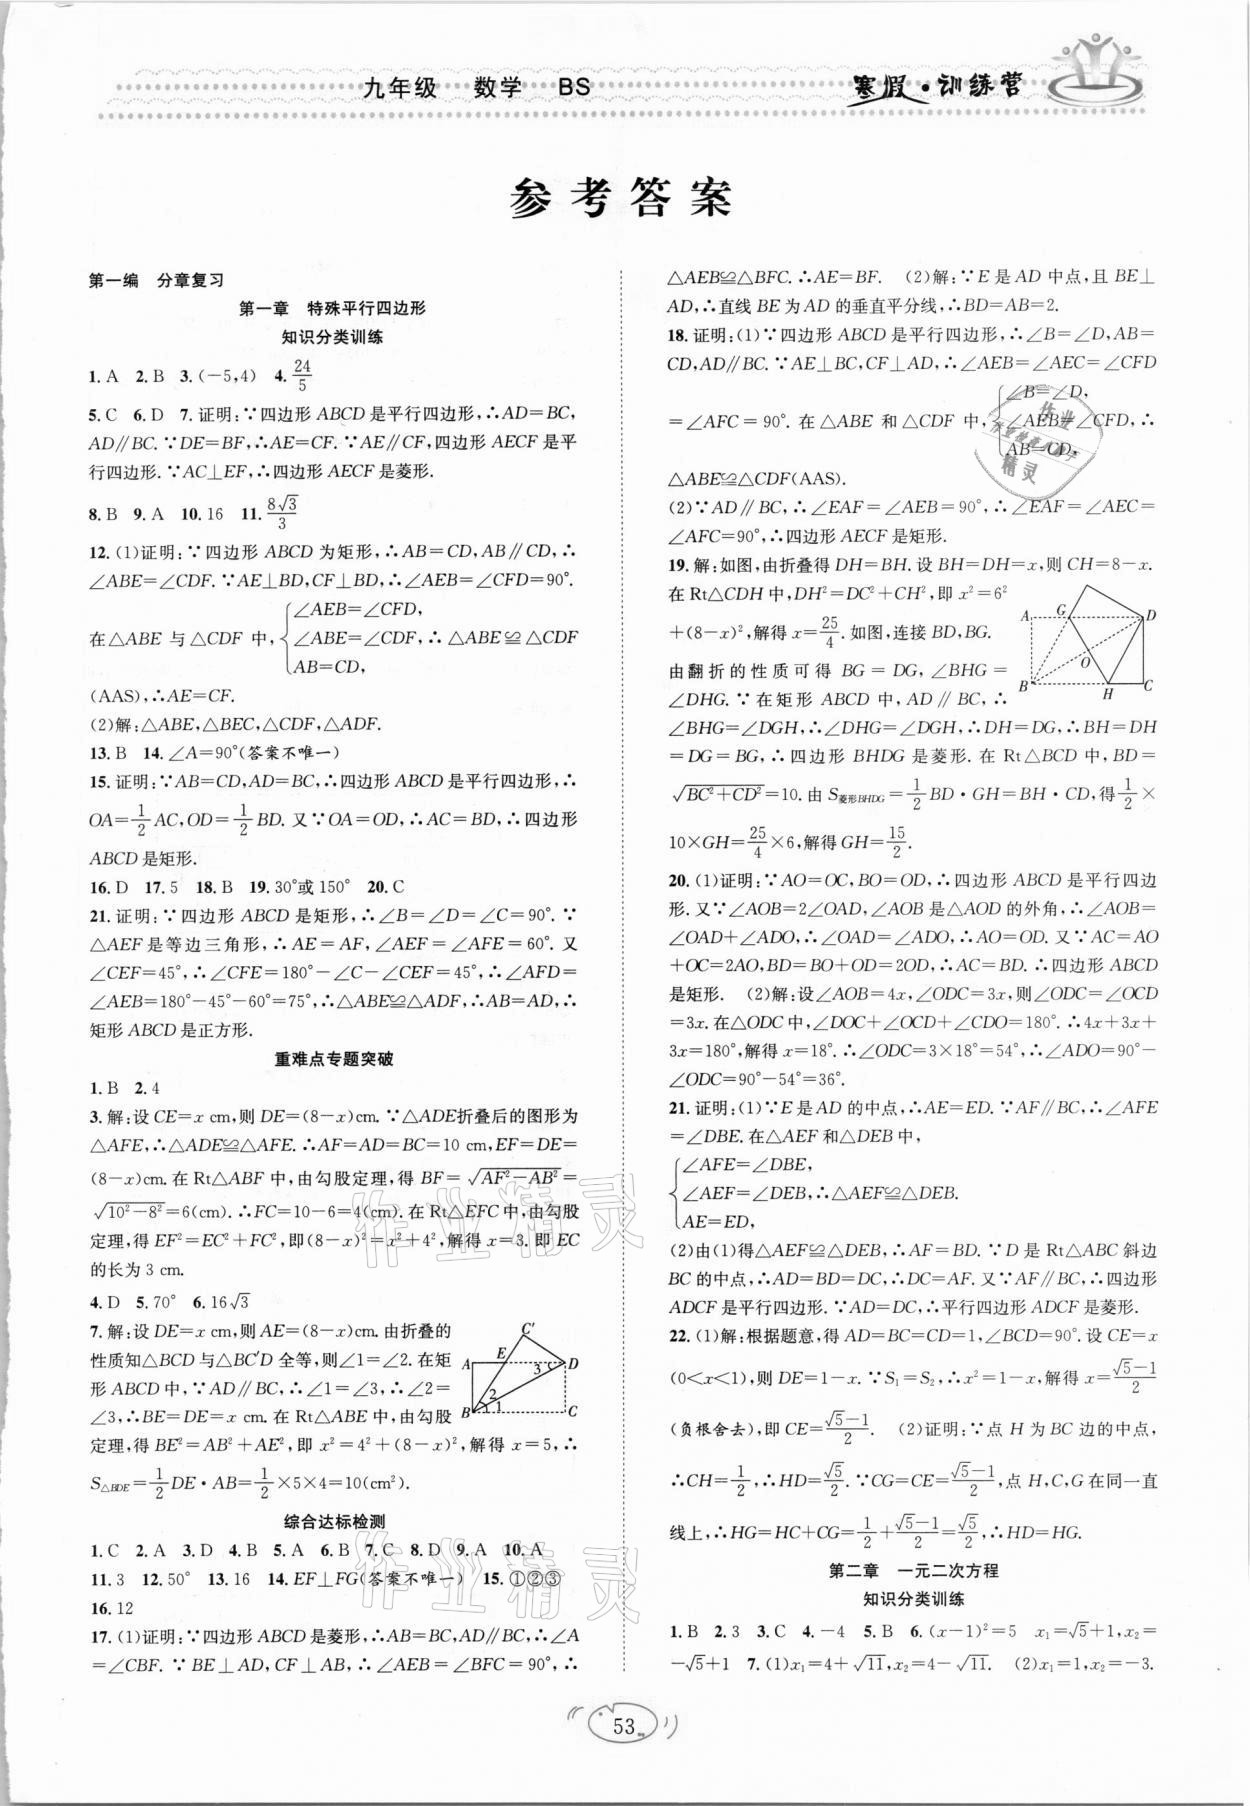 九年级 数学 BS
寒假·训练营
参考答案
第一编 分章复习
第一章 特殊平行四边形
知识分类训练
1. A 2. B 3. (-5,4) 4. 24/5
5. C 6. D 7. 证明:∵四边形 ABCD 是平行四边形,∴AD=BC,
AD∥BC. ∵DE=BF,∴AE=CF. ∵AE∥CF,四边形 AECF 是平
行四边形. ∵AC⊥EF,∴四边形 AECF 是菱形.
8. B 9. A 10. 16 11. 8√3/3
12. (1)证明:∵四边形 ABCD 为矩形,∴AB=CD,AB∥CD,∴
∠ABE=∠CDF. ∵AE⊥BD,CF⊥BD,∴∠AEB=∠CFD=90°.
在△ABE 与△CDF 中, {∠AEB=∠CFD, ∠ABE=∠CDF, AB=CD, ∴△ABE≌△CDF
(AAS),∴AE=CF.
(2)解:△ABE,△BEC,△CDF,△ADF.
13. B 14. ∠A=90°(答案不唯一)
15. 证明:∵AB=CD,AD=BC,∴四边形 ABCD 是平行四边形,∴
OA=1/2 AC,OD=1/2 BD. 又∵OA=OD,∴AC=BD,∴四边形
ABCD 是矩形.
16. D 17. 5 18. B 19. 30°或 150° 20. C
21. 证明:∵四边形 ABCD 是矩形,∴∠B=∠D=∠C=90°. ∵
△AEF 是等边三角形,∴AE=AF,∠AEF=∠AFE=60°. 又
∠CEF=45°,∴∠CFE=180°-∠C-∠CEF=45°,∴∠AFD=
∠AEB=180°-45°-60°=75°,∴△ABE≌△ADF,∴AB=AD,∴
矩形 ABCD 是正方形.
重难点专题突破
1. B 2. 4
3. 解:设 CE=x cm,则 DE=(8-x)cm. ∵△ADE折叠后的图形为
△AFE,∴△ADE≌△AFE. ∴AF=AD=BC=10 cm,EF=DE=
(8-x)cm. 在 Rt△ABF 中,由勾股定理,得 BF=√(AF²-AB²)=
√(10²-8²)=6(cm). ∴FC=10-6=4(cm). 在 Rt△EFC 中,由勾股
定理,得 EF²=EC²+FC²,即(8-x)²=x²+4²,解得 x=3. 即 EC
的长为 3 cm.
4. D 5. 70° 6. 16√3
7. 解:设 DE=x cm,则 AE=(8-x)cm. 由折叠的
性质知△BCD 与△BC′D 全等,则∠1=∠2. 在矩
形 ABCD 中,∵AD∥BC,∴∠1=∠3,∴∠2=
∠3,∴BE=DE=x cm. 在 Rt△ABE 中,由勾股
定理,得 BE²=AB²+AE²,即 x²=4²+(8-x)²,解得 x=5,∴
S△BDE=1/2 DE·AB=1/2×5×4=10(cm²).
C′ A E 3 D B 2 1 C
综合达标检测
1. C 2. A 3. D 4. B 5. A 6. B 7. C 8. D 9. A 10. A
11. 3 12. 50° 13. 16 14. EF⊥FG(答案不唯一) 15. ①②③
16. 12
17. (1)证明:∵四边形 ABCD 是菱形,∴AB=BC,AD∥BC,∴∠A
=∠CBF. ∵BE⊥AD,CF⊥AB,∴∠AEB=∠BFC=90°,∴
△AEB≌△BFC. ∴AE=BF. (2)解:∵E 是 AD 中点,且 BE⊥
AD,∴直线 BE 为 AD 的垂直平分线,∴BD=AB=2.
18. 证明:(1)∵四边形 ABCD 是平行四边形,∴∠B=∠D,AB=
CD,AD∥BC. ∵AE⊥BC,CF⊥AD,∴∠AEB=∠AEC=∠CFD
=∠AFC=90°. 在△ABE 和△CDF 中, {∠B=∠D, ∠AEB=∠CFD, AB=CD, ∴
△ABE≌△CDF(AAS).
(2)∵AD∥BC,∴∠EAF=∠AEB=90°,∴∠EAF=∠AEC=
∠AFC=90°,∴四边形 AECF 是矩形.
19. 解:如图,由折叠得 DH=BH. 设 BH=DH=x,则 CH=8-x.
在 Rt△CDH 中,DH²=DC²+CH²,即 x²=6²
+(8-x)²,解得 x=25/4. 如图,连接 BD,BG.
由翻折的性质可得 BG=DG,∠BHG=
∠DHG. ∵在矩形 ABCD 中,AD∥BC,∴
∠BHG=∠DGH,∴∠DHG=∠DGH,∴DH=DG,∴BH=DH
=DG=BG,∴四边形 BHDG 是菱形. 在 Rt△BCD 中,BD=
√(BC²+CD²)=10. 由 S菱形BHDG=1/2 BD·GH=BH·CD,得1/2×
10×GH=25/4×6,解得 GH=15/2.
A G D O B H C
20. (1)证明:∵AO=OC,BO=OD,∴四边形 ABCD 是平行四边
形. 又∵∠AOB=2∠OAD,∠AOB 是△AOD 的外角,∴∠AOB=
∠OAD+∠ADO,∴∠OAD=∠ADO,∴AO=OD. 又∵AC=AO
+OC=2AO,BD=BO+OD=2OD,∴AC=BD. ∴四边形 ABCD
是矩形. (2)解:设∠AOB=4x,∠ODC=3x,则∠ODC=∠OCD
=3x. 在△ODC 中,∠DOC+∠OCD+∠CDO=180°. ∴4x+3x+
3x=180°,解得 x=18°. ∴∠ODC=3×18°=54°,∴∠ADO=90°-
∠ODC=90°-54°=36°.
21. 证明:(1)∵E 是 AD 的中点,∴AE=ED. ∵AF∥BC,∴∠AFE
=∠DBE. 在△AEF 和△DEB 中,
{∠AFE=∠DBE,
∠AEF=∠DEB,∴△AEF≌△DEB.
AE=ED,
(2)由(1)得△AEF≌△DEB,∴AF=BD. ∵D 是 Rt△ABC 斜边
BC 的中点,∴AD=BD=DC,∴DC=AF. 又∵AF∥BC,∴四边形
ADCF 是平行四边形. ∵AD=DC,∴平行四边形 ADCF 是菱形.
22. (1)解:根据题意,得 AD=BC=CD=1,∠BCD=90°. 设 CE=x
(0<x<1),则 DE=1-x. ∵S₁=S₂,∴x²=1-x,解得 x=(√5-1)/2
(负根舍去),即 CE=(√5-1)/2. (2)证明:∵点 H 为 BC 边的中点,
∴CH=1/2,∴HD=√5/2. ∵CG=CE=(√5-1)/2,点 H,C,G 在同一直
线上,∴HG=HC+CG=1/2+(√5-1)/2=√5/2,∴HD=HG.
第二章 一元二次方程
知识分类训练
1. B 2. 3 3. C 4. -4 5. B 6. (x-1)²=5 x₁=√5+1,x₂=
-√5+1 7. (1)x₁=4+√11,x₂=4-√11. (2)x₁=1,x₂=-3.
53
作业精灵
作业精灵
作业
精灵